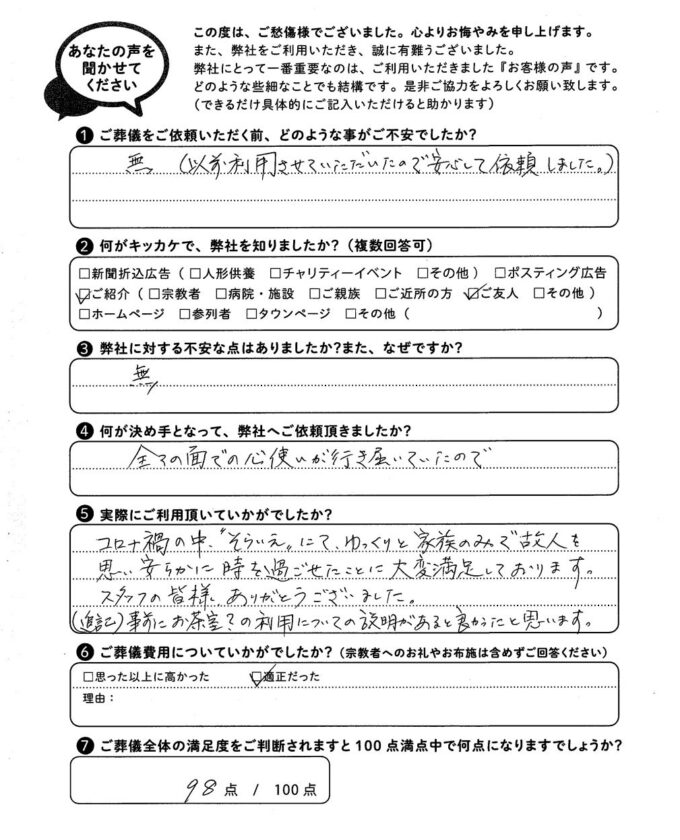 あなたの声を
聞かせて
ください
この度は、ご愁傷様でございました。心よりお悔やみを申し上げます。
また、弊社をご利用いただき、誠に有難うございました。
弊社にとって一番重要なのは、ご利用いただきました『お客様の声』です。
どのような些細なことでも結構です。是非ご協力をよろしくお願い致します。
(できるだけ具体的にご記入いただけると助かります)
❶ ご葬儀をご依頼いただく前、どのような事がご不安でしたか?
無 (以前利用させていただいたので安心して依頼しました。)
❷ 何がキッカケで、弊社を知りましたか?(複数回答可)
□新聞折込広告(□人形供養 □チャリティーイベント □その他) □ポスティング広告
☑ご紹介(□宗教者 □病院・施設 □ご親族 □ご近所の方 ☑ご友人 □その他)
□ホームページ □参列者 □タウンページ □その他( )
❸ 弊社に対する不安な点はありましたか?また、なぜですか?
無
❹ 何が決め手となって、弊社へご依頼頂きましたか?
全ての面での心使いが行き届いていたので
❺ 実際にご利用頂いていかがでしたか?
コロナ禍の中、“そらいえ„にて、ゆっくりと家族のみで故人を
思い安らかに時を過ごせたことに大変満足しております。
スタッフの皆様、ありがとうございました。
(追記)事前にお茶室?の利用についての説明があると良かったと思います。
❻ ご葬儀費用についていかがでしたか?(宗教者へのお礼やお布施は含めずご回答ください)
□思った以上に高かった ☑適正だった
理由:
❼ ご葬儀全体の満足度をご判断されますと100点満点中で何点になりますでしょうか?
98 点 / 100 点